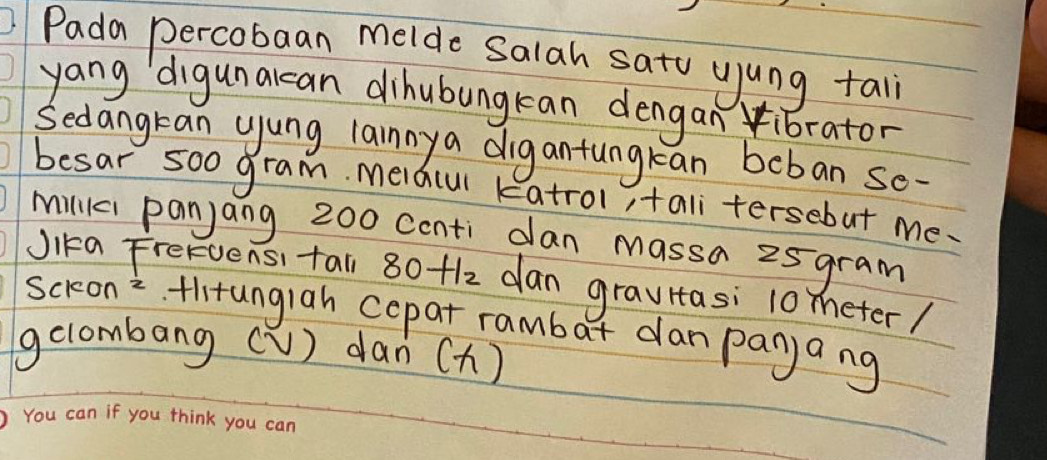 Pada percobaan melde salah satu ujung tali
yang digunakan dihubungkan dengan vibrator
Sedangkan ujung lainnya digantungkan beban se-
besar 500 gram. Melalui katrol, tali tersebut me-
miliki panjang 200 centi dan massa 25 gram
Jika Frekuensi tali 80 Hz dan gravitasi 10 meter/
Sekon². Hitunglah cepat rambat dan panjang
gelombang (V) dan (λ)
You can if you think you can